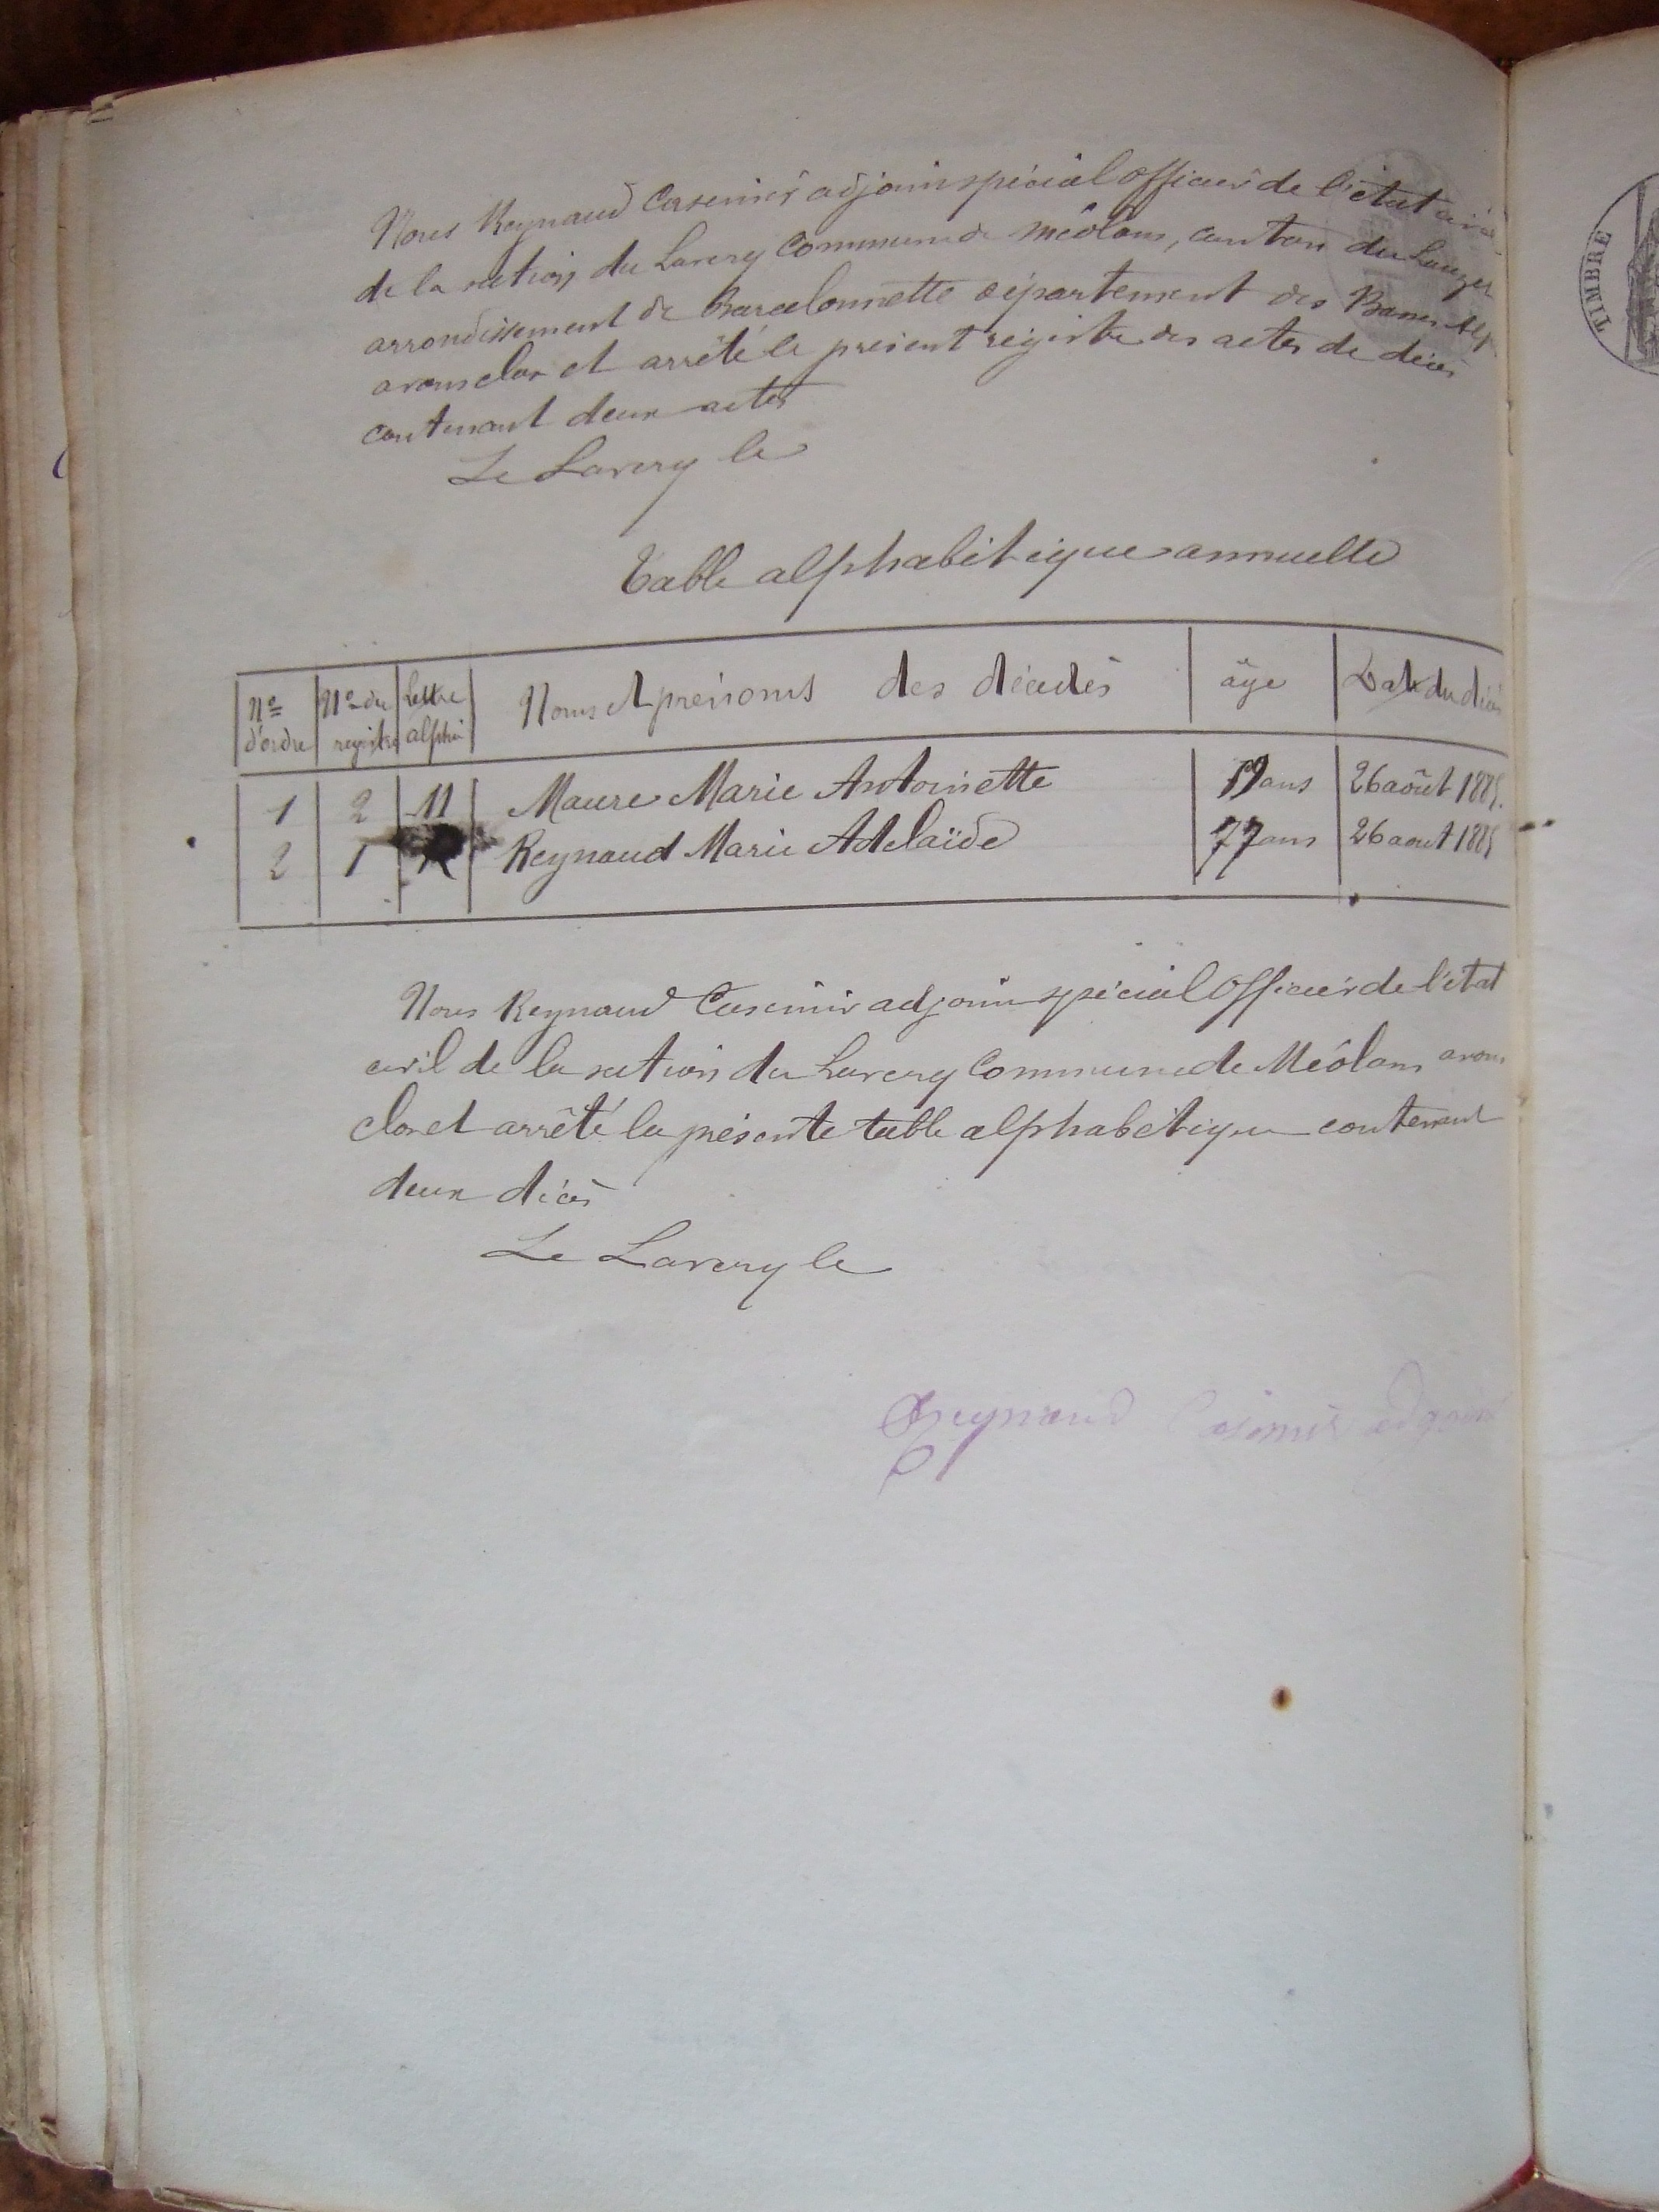 Nous Reynaud Casimir adjoint spécial officier de l'état civil
de la section du Laverq Commune de Méolans, canton du Lauzet
arrondissement de Barcelonnette département des Basses Alp
avons clos et arrêté le présent régistre des actes de décès
contenant deux actes
Le Laverq le
Table alphabétique annuelle
N° d'ordre N° du registre Lettre alpha Noms et prénoms des décédés âge Date du décès
1 2 M Maure Marie Antoinette ans 26 août
2 1 R Reynaud Marie Adelaïde 77 ans 26 aout
Nous Reynaud Casimir adjoint spécial officier de l'état
civil de la section du Laverq Commune de Méolans avons
clos et arrêté la présente table alphabétique contenant
deux décès
Le Laverq le
Reynaud Casimir adjoint
TIMBRE